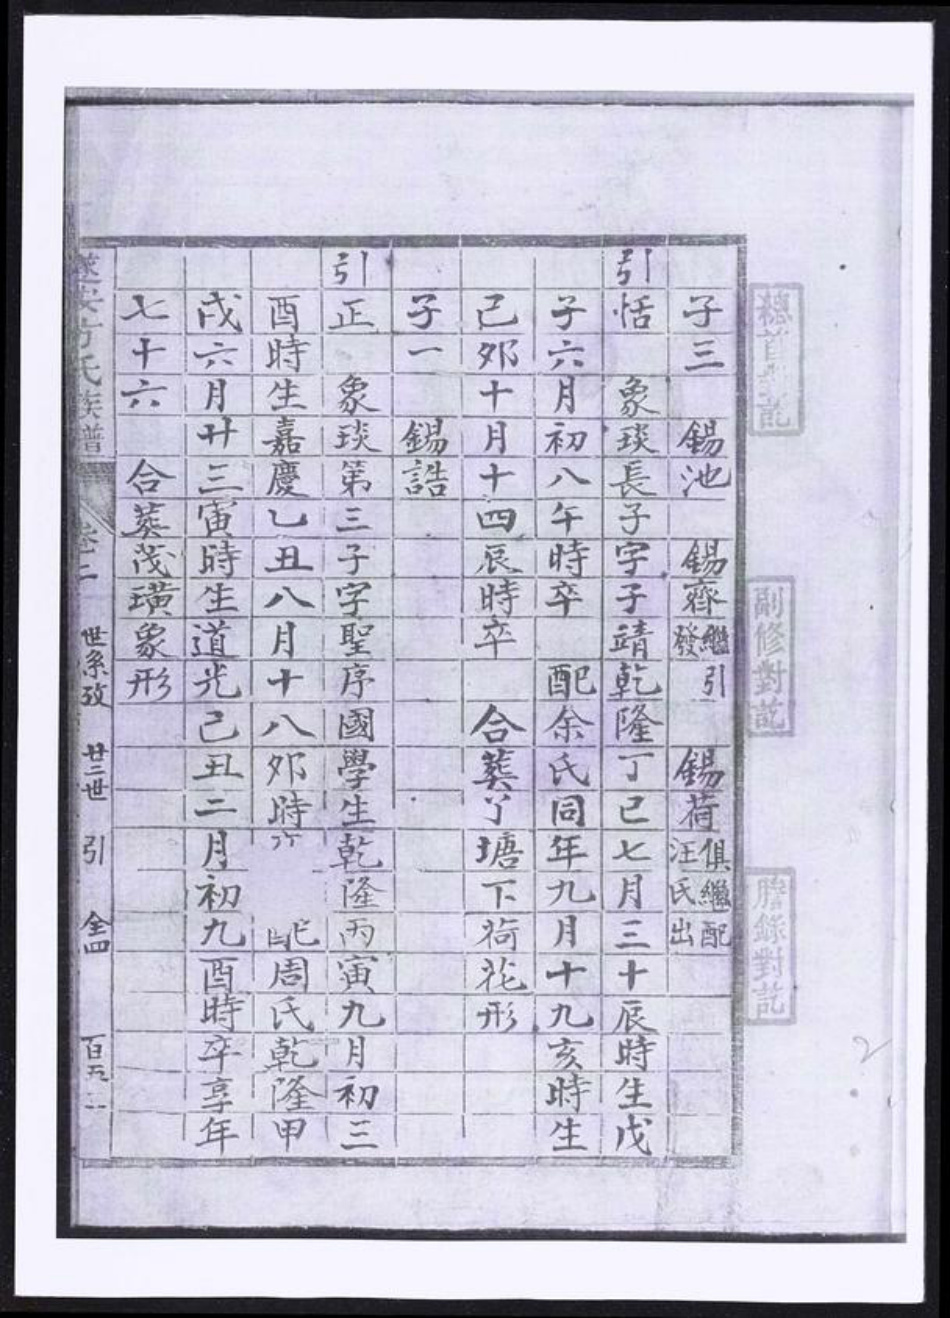 總首對訖
副修對訖
謄錄對訖
子三 錫池 錫齊繼引發 錫荷俱繼配汪氏出
引恬 象琰長子字子靖乾隆丁巳七月三十辰時生戊
子六月初八午時卒 配余氏同年九月十九亥時生
己夘十月十四辰時卒 合葬丫塘下荷花形
子一 錫誥
引正 象琰第三子字聖序國學生乾隆丙寅九月初三
酉時生嘉慶乙丑八月十八夘時 配周氏乾隆甲
戌六月廿三寅時生道光己丑二月初九酉時卒享年
七十六 合葬茂璜象形
遂安方氏族譜 卷二 世系攷 廿二世 引 仝四 百五